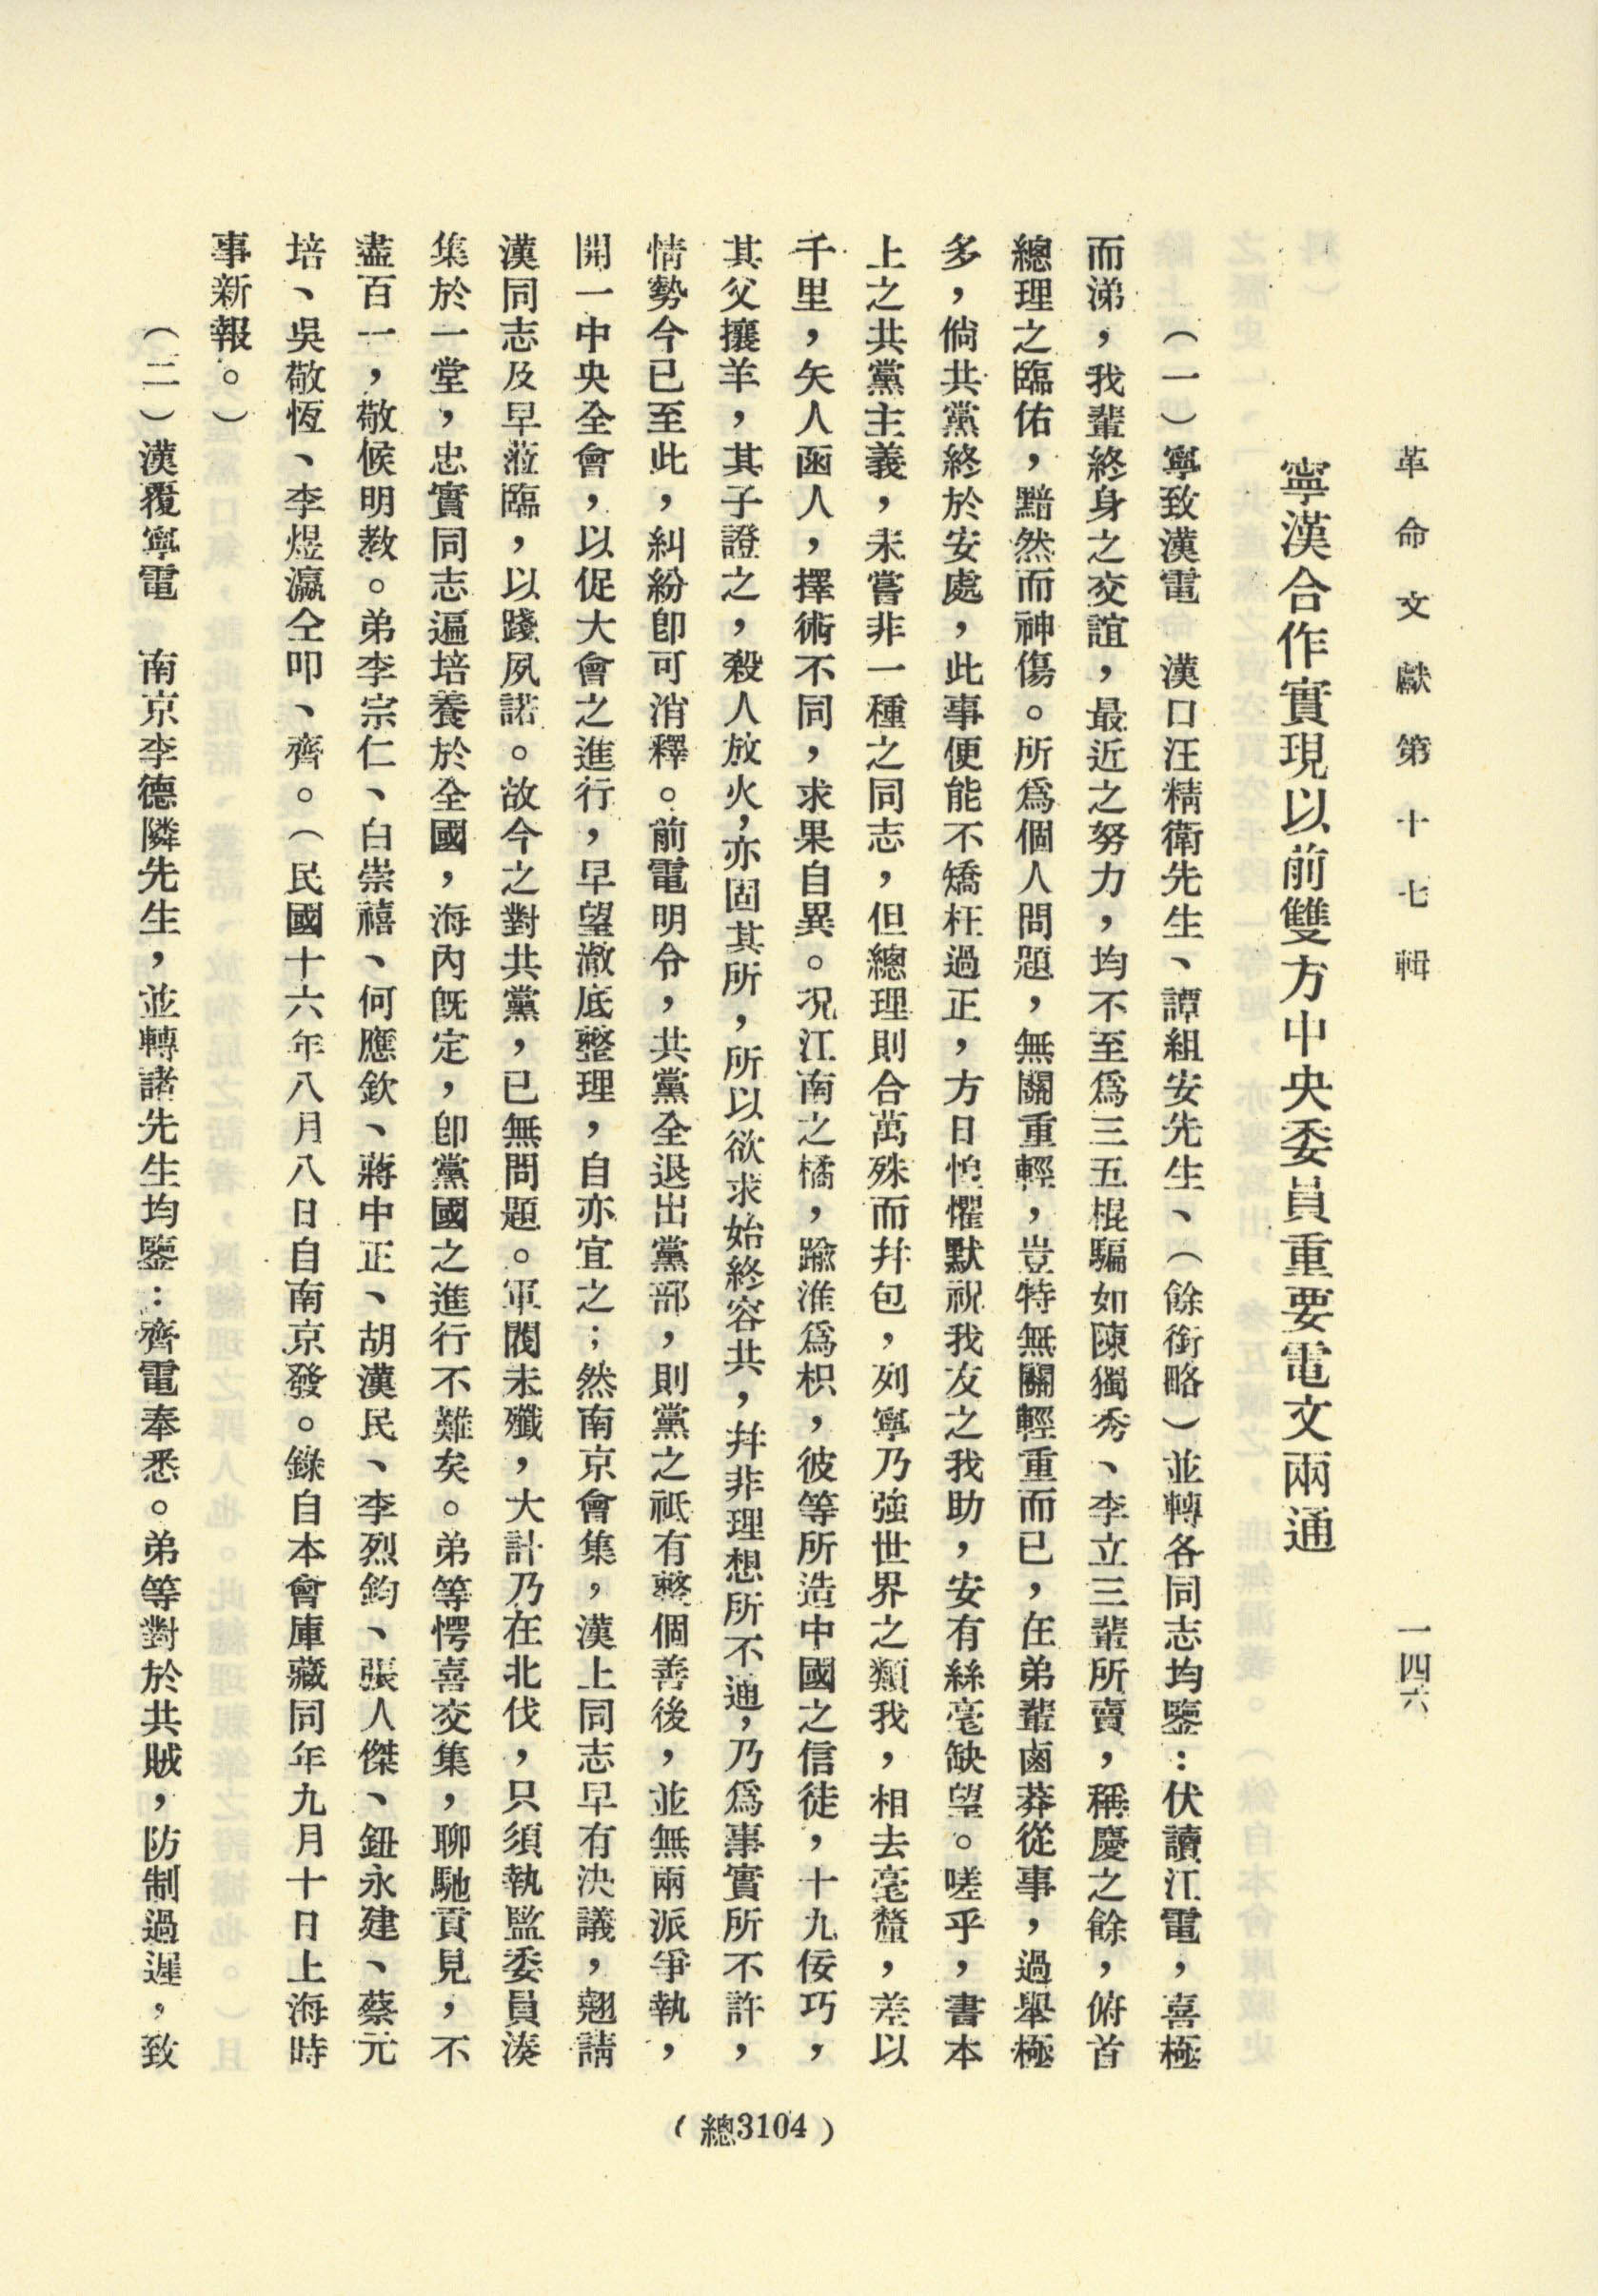 革命文獻第十七輯
一四六
寧漢合作實現以前雙方中央委員重要電文兩通
（一）寧致漢電　漢口汪精衛先生、譚組安先生、（餘銜略）並轉各同志均鑒：伏讀江電，喜極
而涕，我輩終身之交誼，最近之努力，均不至爲三五棍騙如陳獨秀、李立三輩所賣，稱慶之餘，俯首
總理之臨佑，黯然而神傷。所爲個人問題，無關重輕，豈特無關輕重而已，在弟輩鹵莽從事，過舉極
多，倘共黨終於安處，此事便能不矯枉過正，方日惶懼默祝我友之我助，安有絲毫缺望。嗟乎，書本
上之共黨主義，未嘗非一種之同志，但總理則合萬殊而幷包，列寧乃強世界之類我，相去毫釐，差以
千里，矢人函人，擇術不同，求果自異。况江南之橘，踰淮爲枳，彼等所造中國之信徒，十九佞巧，
其父攘羊，其子證之，殺人放火，亦固其所，所以欲求始終容共，幷非理想所不通，乃爲事實所不許，
情勢今已至此，糾紛卽可消釋。前電明令，共黨全退出黨部，則黨之祇有整個善後，並無兩派爭執，
開一中央全會，以促大會之進行，早望澈底整理，自亦宜之；然南京會集，漢上同志早有決議，翹請
漢同志及早蒞臨，以踐夙諾。故今之對共黨，已無問題。軍閥未殲，大計乃在北伐，只須執監委員湊
集於一堂，忠實同志遍培養於全國，海內旣定，卽黨國之進行不難矣。弟等愕喜交集，聊馳貢見，不
盡百一，敬候明教。弟李宗仁、白崇禧、何應欽、蔣中正、胡漢民、李烈鈞、張人傑、鈕永建、蔡元
培、吳敬恆、李煜瀛仝叩、齊。（民國十六年八月八日自南京發。錄自本會庫藏同年九月十日上海時
事新報。）
（二）漢覆寧電　南京李德隣先生，並轉諸先生均鑒：齊電奉悉。弟等對於共賊，防制過遲，致
（總3104）